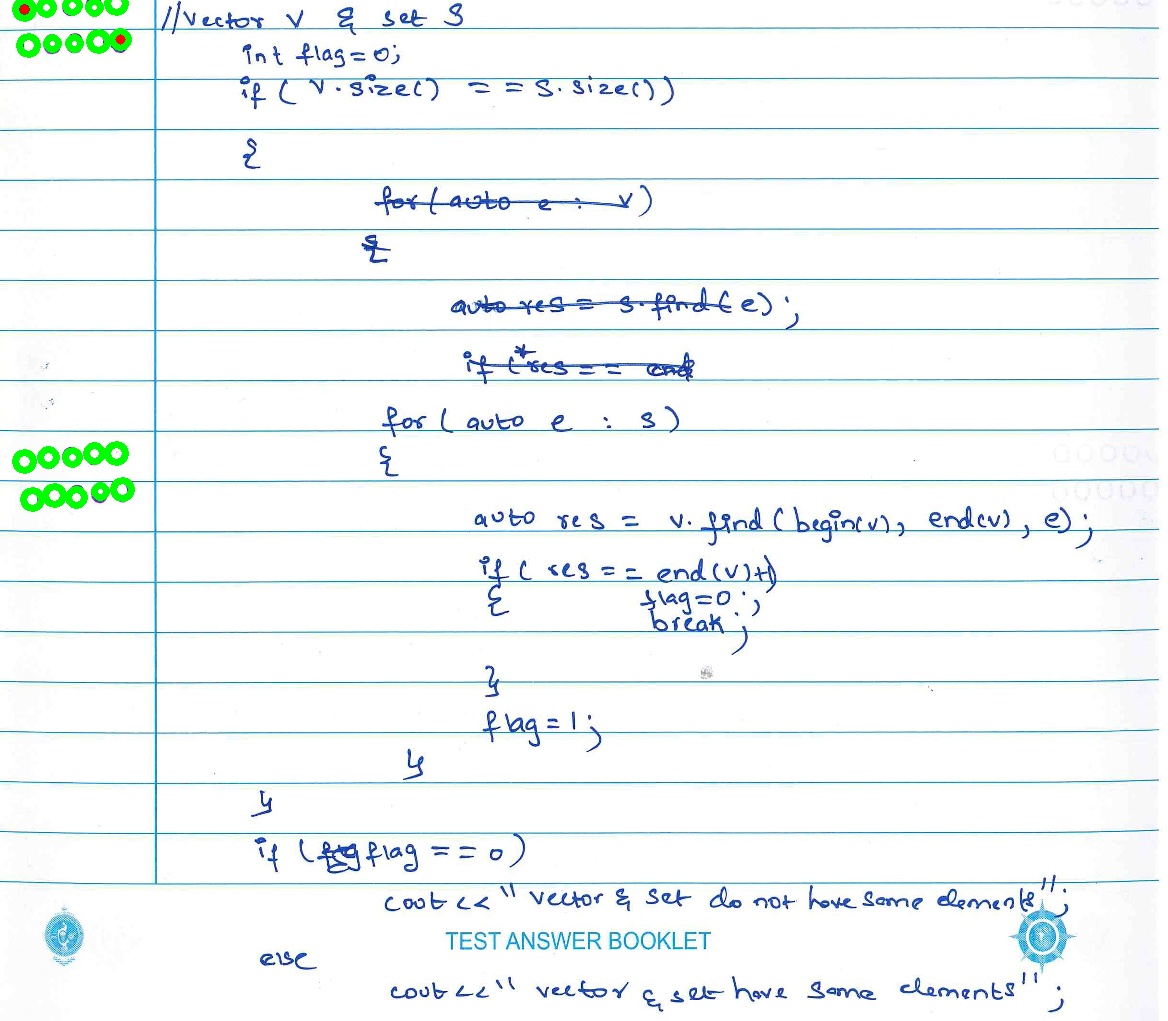 //Vector V & set S
int flag=0;
if ( V.size() == S.size())
{
for ( auto e : v)
{
auto res = s.find(e);
if (*res == end
for ( auto e : s)
{
auto res = v.find(begin(v), end(v), e);
if ( res == end(v)+1)
{ flag=0;
break;
}
flag=1;
}
}
if ( flag == 0)
cout << " vector & set do not have same elements";
TEST ANSWER BOOKLET
else
cout << " vector & set have same elements";